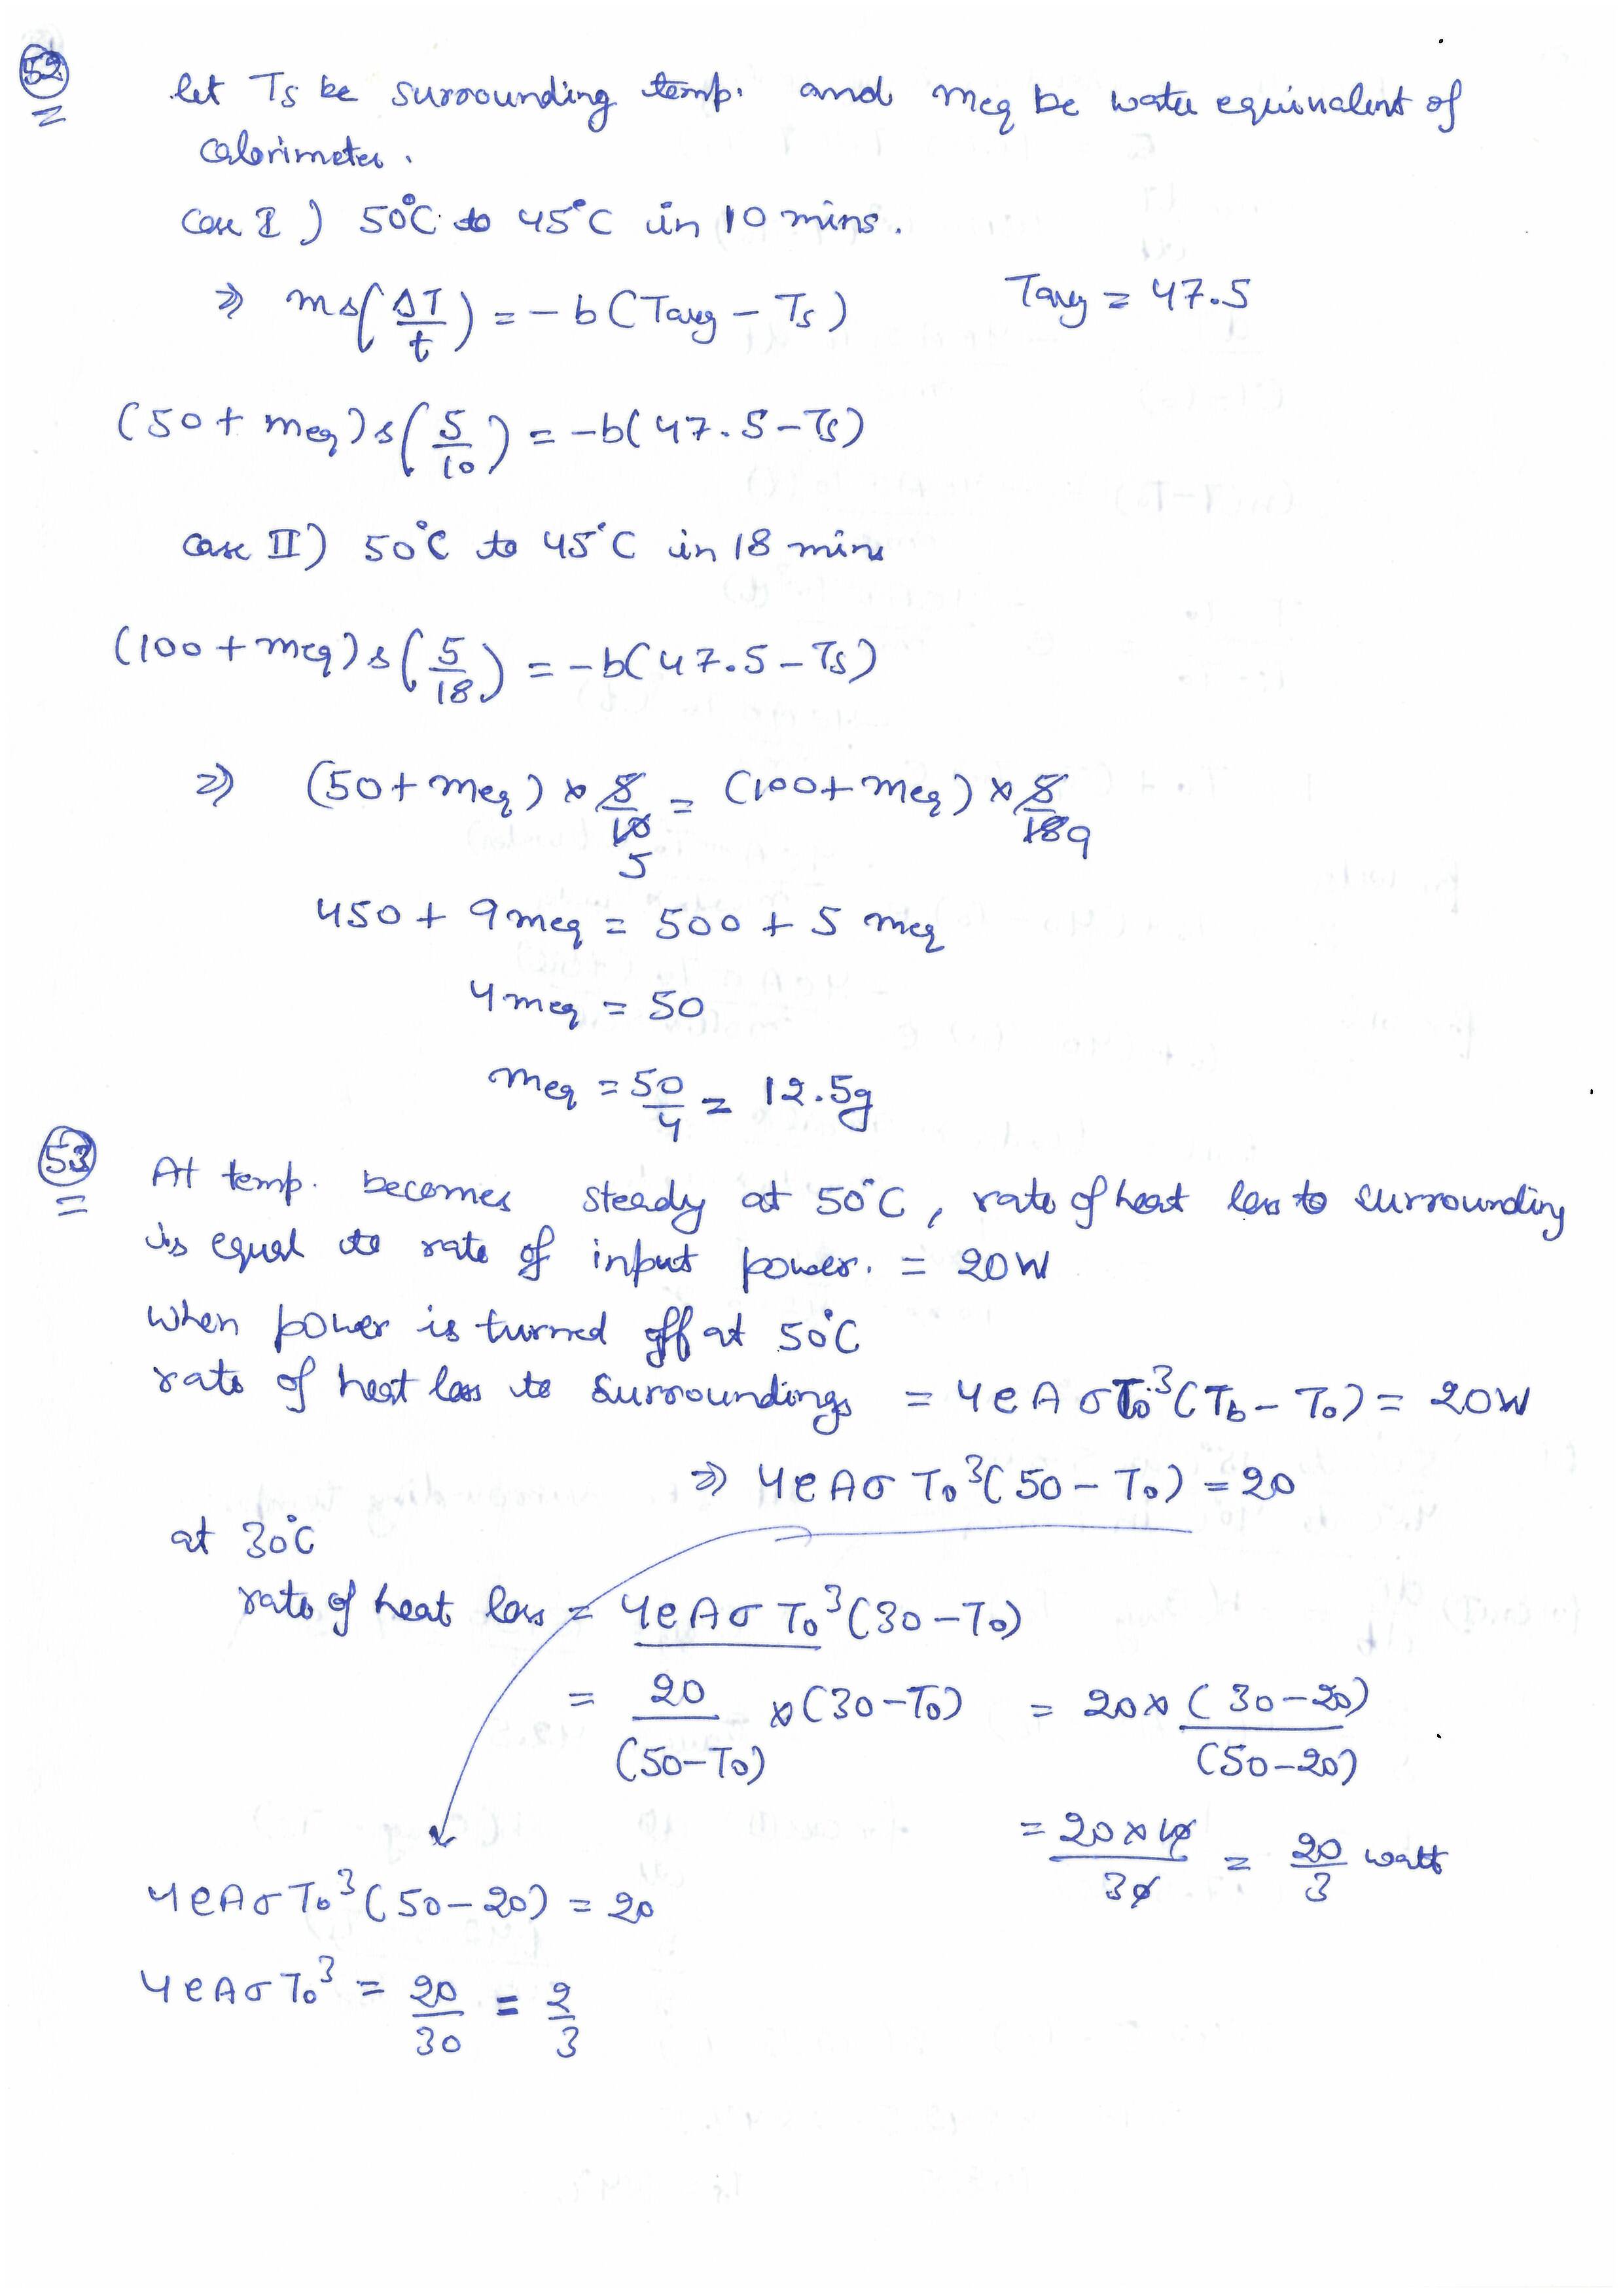 52
let Ts be surrounding temp. and meq be water equivalent of
calorimeter.
case I) 50°C to 45°C in 10 mins.
⇒ ms(ΔT/t) = -b(Tavg - Ts) Tavg = 47.5
(50 + meq)s(5/10) = -b(47.5 - Ts)
case II) 50°C to 45°C in 18 mins
(100 + meq)s(5/18) = -b(47.5 - Ts)
⇒ (50 + meq) × 5/10 = (100 + meq) × 5/18 9
5
450 + 9 meq = 500 + 5 meq
4 meq = 50
meq = 50/4 = 12.5g
53
At temp. becomes steady at 50°C, rate of heat loss to surrounding
is equal to rate of input power. = 20W
when power is turned off at 50°C
rate of heat loss to surroundings = 4eAσT₀³(Tb - T₀) = 20W
⇒ 4eAσT₀³(50 - T₀) = 20
at 30°C
rate of heat loss = 4eAσT₀³(30 - T₀)
= 20/(50-T₀) × (30-T₀) = 20 × (30-20)/(50-20)
= 20×10/30 = 20/3 watt
4eAσT₀³(50-20) = 20
4eAσT₀³ = 20/30 = 2/3